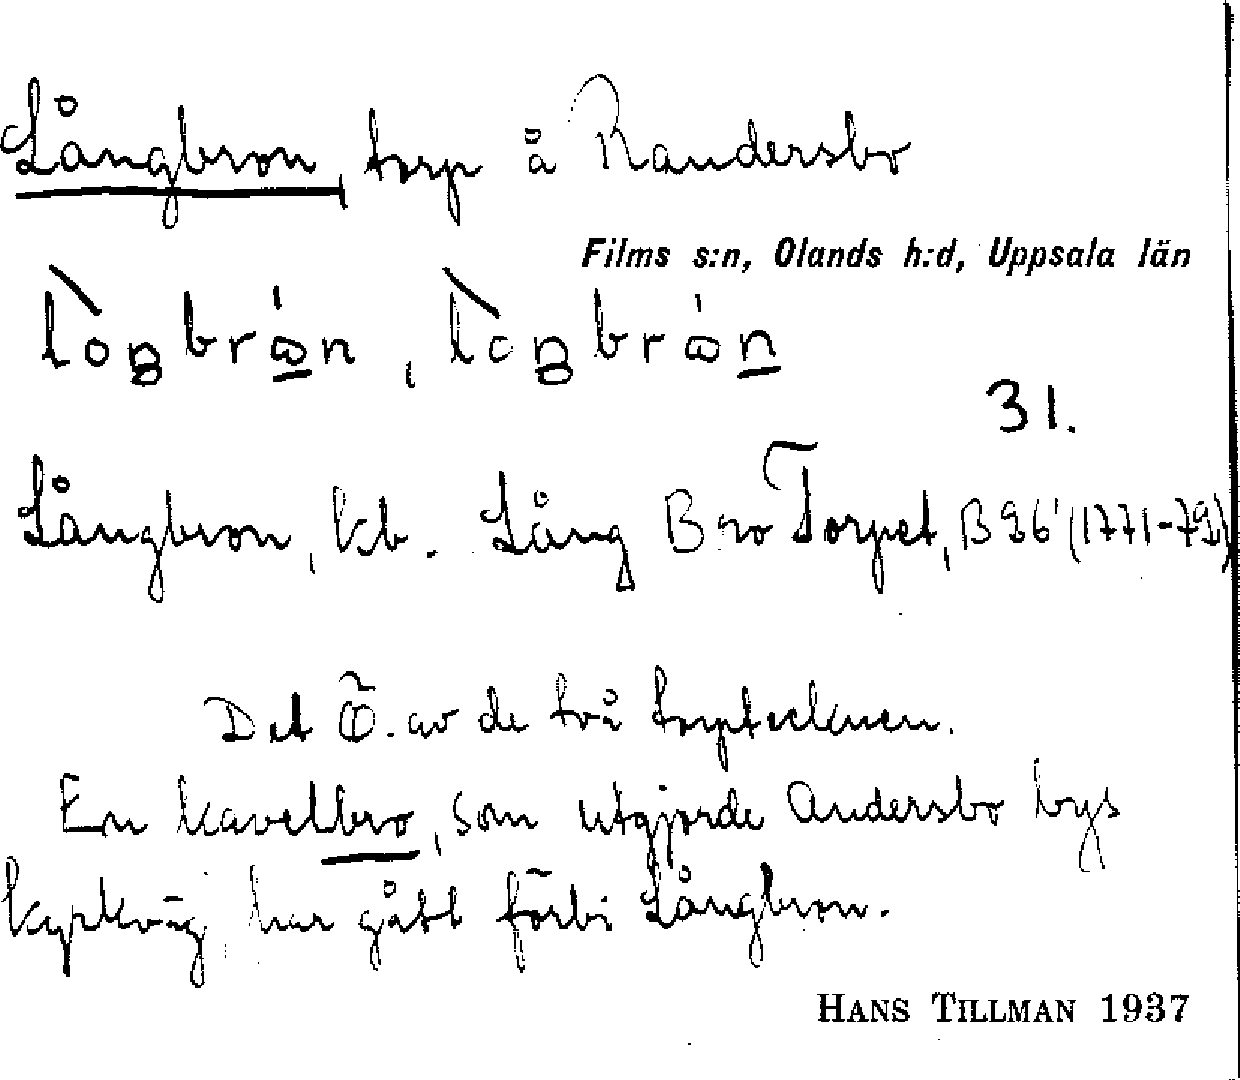 Långbron, torp å Randersbo
Films s:n, Olands h:d, Uppsala län
31.
Långbron, kb. Lång Bro Torpet, B 26 (1771-79)
Det Ö. av de två torptecknen.
En kavelbro, som utgjorde Andersbo bys
kyrkväg, har gått förbi Långbron.
HANS TILLMAN 1937